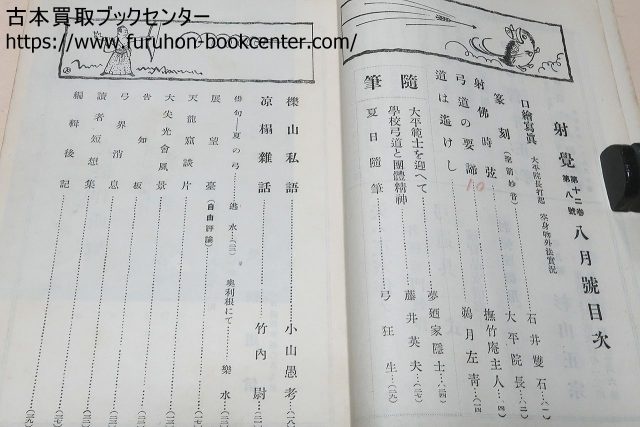 古本買取ブックセンター
https://www.furuhon-bookcenter.com/
射覺 第十二卷 第八號 八月號目次
口繪寫眞 大平院長打起
篆刻 石井雙石
射佛時弦 大平院長
弓道の要諦 撫竹庵主人…(四)
道は遙けし 鵜月左靑
隨筆
大平範士を迎へて 夢廼家隱士
學校弓道と團體精神 藤井英夫
夏日隨筆 弓狂生
櫟山私語 小山愚考
凉榻雜話 竹內尉
俳句 夏の弓 逃水
奧利根にて 樂水
展望臺(自由評論)
天龍窟談片
大矢光會風景
告知板
弓界消息
讀者短想集
編輯後記